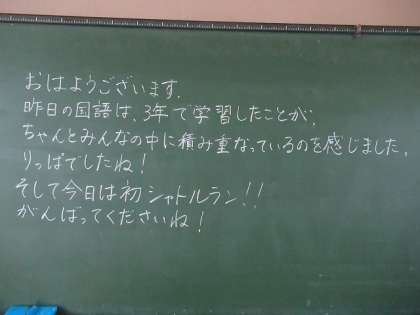 おはようございます.
昨日の国語は、3年で学習したことが、
ちゃんとみんなの中に積み重なっているのを感じました。
りっぱでしたね!
そして今日は初シャトルラン!!
がんばってくださいね!